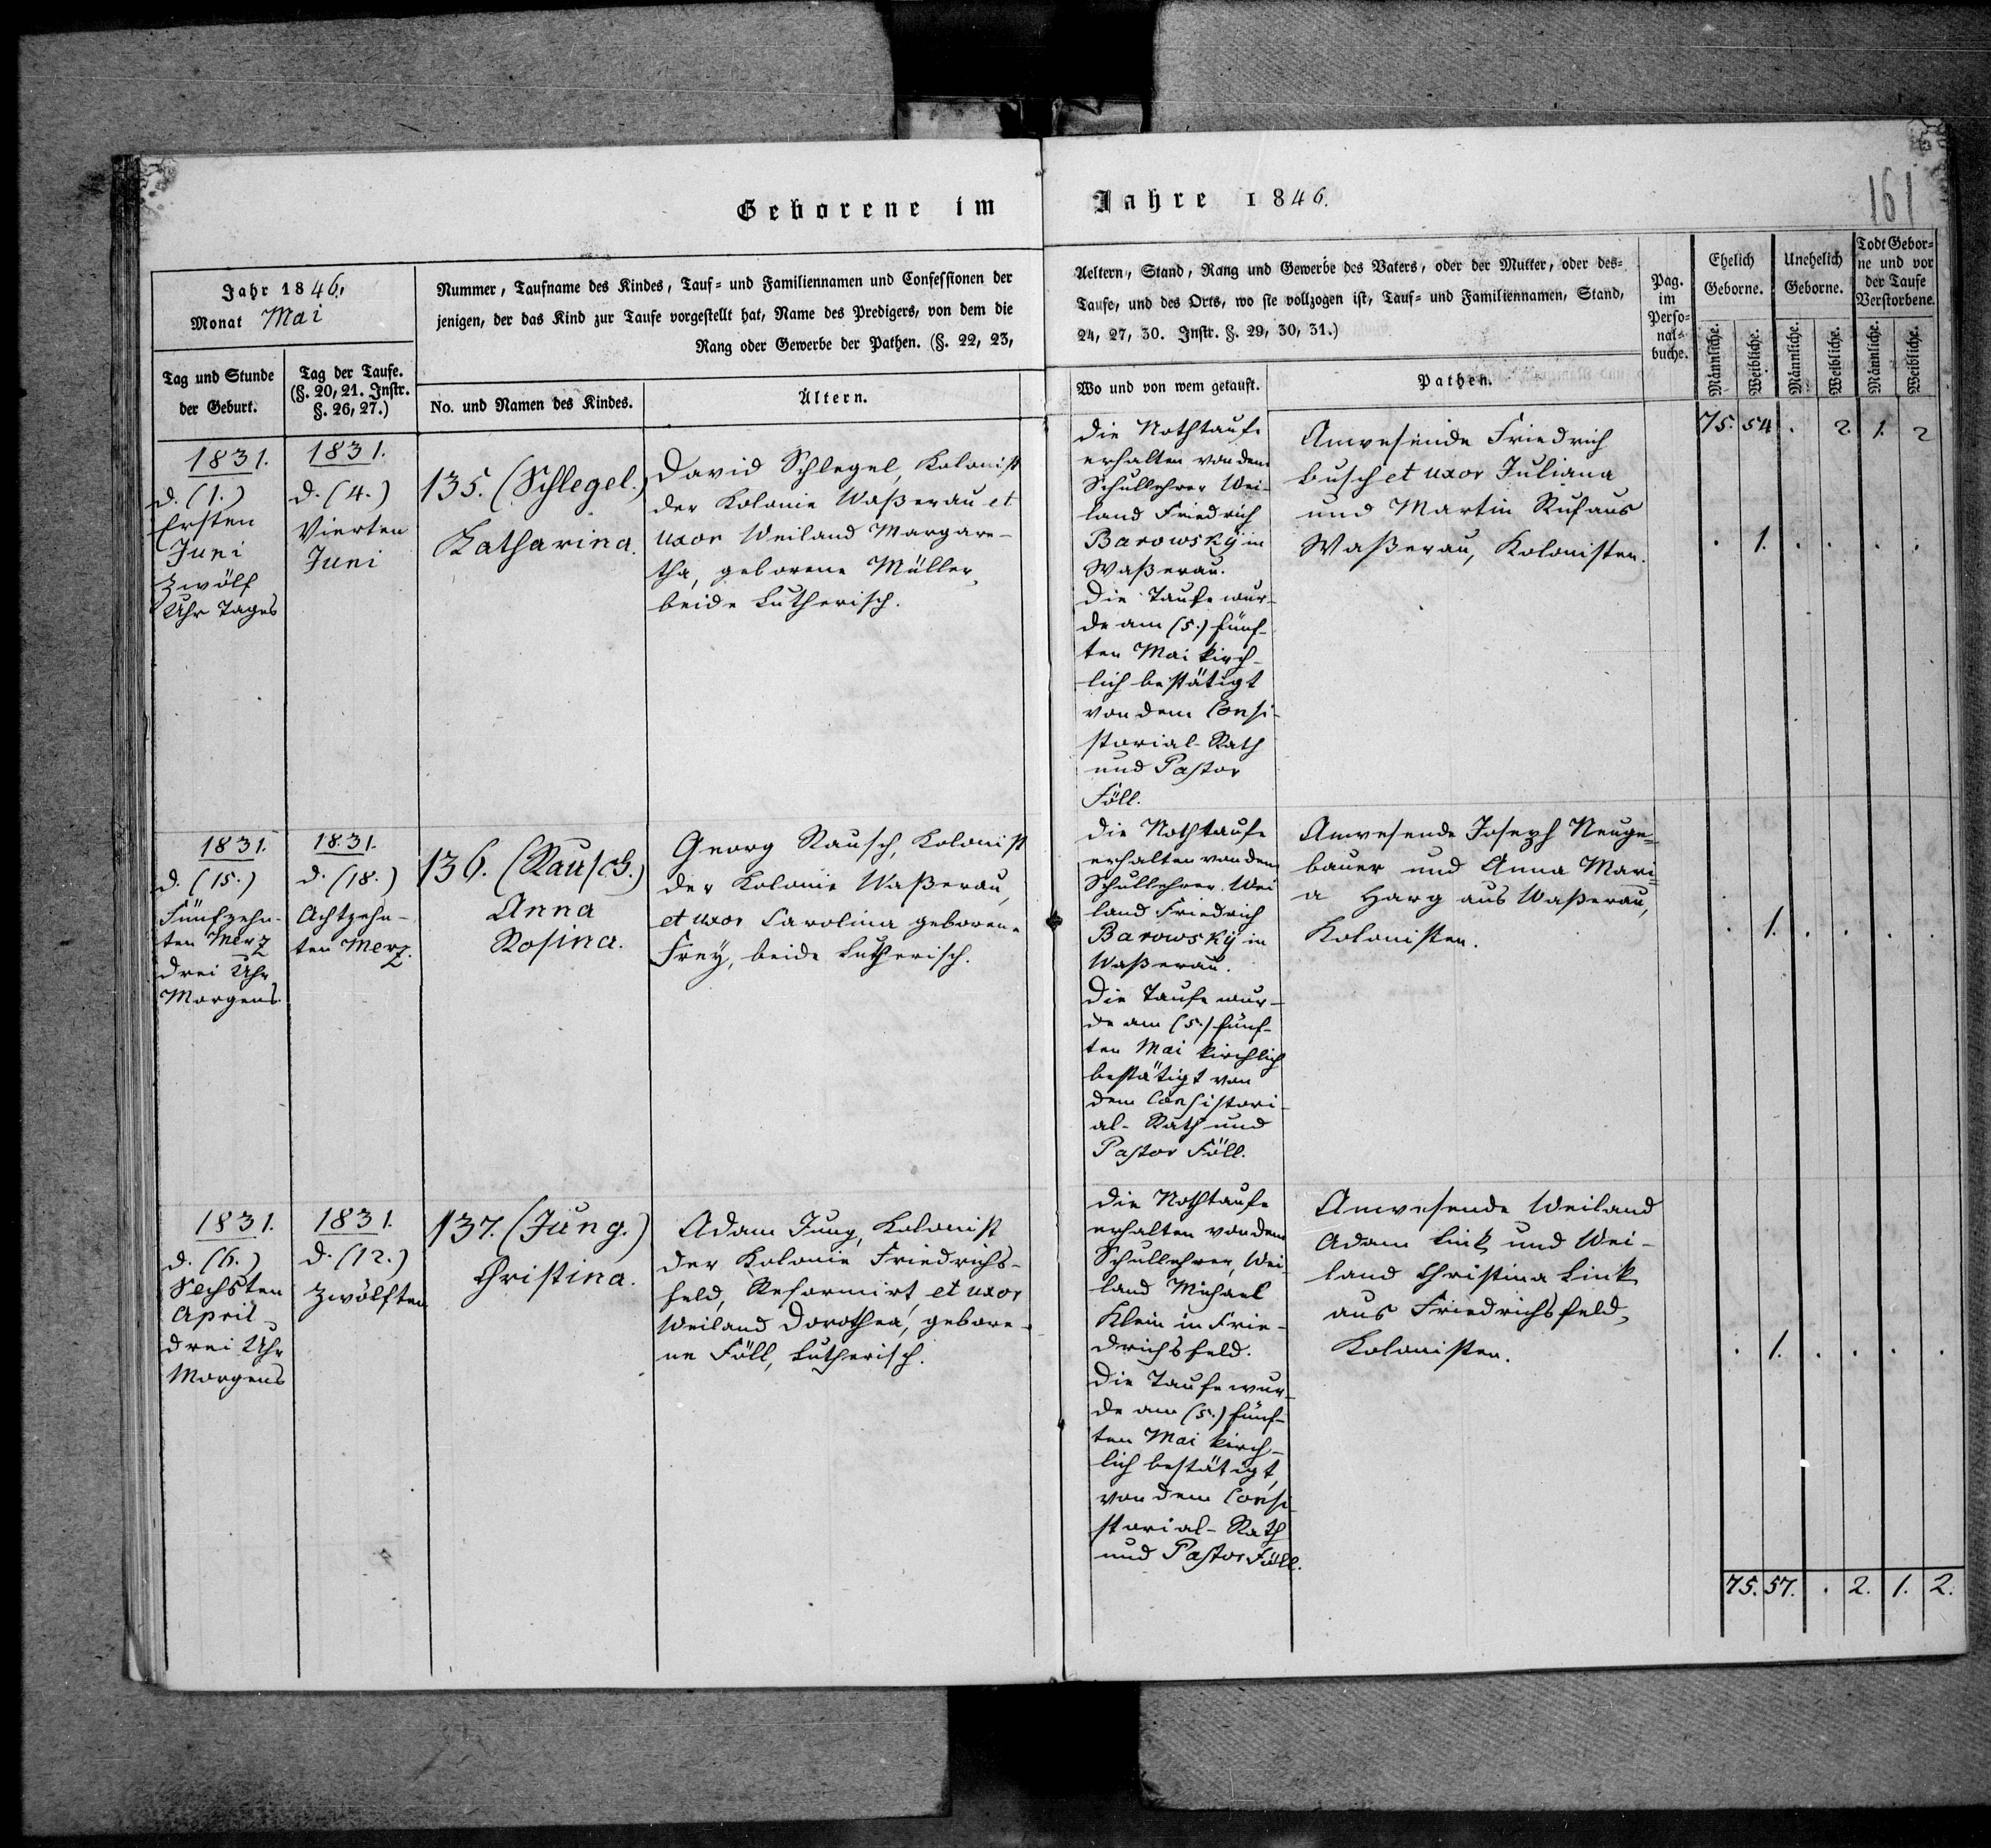 Geborene im
Jahre 1846.
161
Jahr 1846.
Monat Mai
Nummer, Taufname des Kindes, Tauf- und Familiennamen und Confessionen der
jenigen, der das Kind zur Taufe vorgestellt hat, Name des Predigers, von dem die
Rang oder Gewerbe der Pathen. (§. 22, 23,
Aeltern, Stand, Rang und Gewerbe des Vaters, oder der Mutter, oder des=
Taufe, und des Orts, wo sie vollzogen ist, Tauf= und Familiennamen, Stand,
24, 27, 30. Instr. §. 29, 30, 31.)
Pag.
im
Perso=
nal=
buche.
Ehelich
Geborne.
Unehelich
Geborne.
Todt Gebor=
ne und vor
der Taufe
Verstorbene.
Männliche.
Weibliche.
Männliche.
Weibliche.
Männliche.
Weibliche.
Tag und Stunde
der Geburt.
Tag der Taufe.
(§. 20, 21. Instr.
§. 26, 27.)
No. und Namen des Kindes.
Ältern.
Wo und von wem getauft.
Pathen.
75. 54 . 2 1. 2
1831.
d. (1.)
Ersten
Juni
Zwölf
Uhr Tages
1831.
d. (4.)
Vierten
Juni
135. (Schlegel.)
Katharina.
David Schlegel, Kolonist
der Kolonie Waßerau et
uxor Weiland Margare-
tha, geborene Müller,
beide Lutherisch.
Die Nothtaufe
erhalten von dem
Schullehrer Wei-
land Friedrich
Barowsky in
Waßerau.
Die Taufe wur-
de am (5.) fünf-
ten Mai kirch-
lich bestätigt
von dem Consi-
storial-Rath
und Pastor
Föll.
Anwesende Friedrich
Busch et uxor Juliana
und Martin Ruf aus
Waßerau, Kolonisten.
. 1. . . . .
1831.
d. (15.)
Fünfzehn-
ten Merz
drei Uhr
Morgens
1831.
d. (18.)
Achtzehn-
ten Merz.
136. (Rausch.)
Anna
Rosina.
Georg Rausch, Kolonist
der Kolonie Waßerau,
et uxor Carolina geborene
Frey, beide Lutherisch.
Die Nothtaufe
erhalten von dem
Schullehrer Wei
land Friedrich
Barowsky in
Waßerau.
Die Taufe wur-
de am (5.) fünf-
ten Mai kirchlich
bestätigt von
dem Consistori-
al-Rath und
Pastor Föll.
Anwesende Joseph Neuge=
bauer und Anna Mari=
a Harg aus Waßerau,
Kolonisten.
. 1. . . . .
1831.
d. (6.)
Sechsten
April
drei Uhr
Morgens
1831.
d. (12.)
Zwölften
137. (Jung.)
Christina.
Adam Jung, Kolonist
der Kolonie Friedrichs-
feld, Reformirt, et uxor
Weiland Dorothea, gebore-
ne Föll, Lutherisch.
Die Nothtaufe
erhalten von dem
Schullehrer, Wei-
land Michael
Klein in Frie-
drichsfeld.
Die Taufe wur-
de am (5.) fünf-
ten Mai kirch-
lich bestätigt,
von dem Consi-
storial-Rath
und Pastor Föll.
Anwesende Weiland
Adam Link und Wei-
land Christina Link
aus Friedrichsfeld,
Kolonisten.
. 1. . . . .
75. 57. . 2. 1. 2.